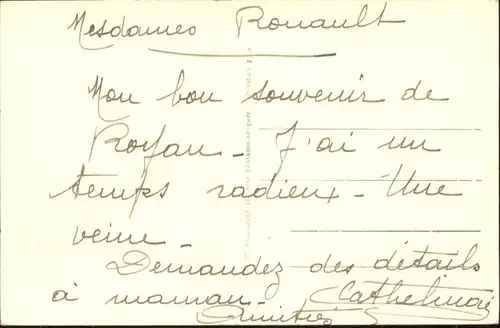 Mesdames Rouault
Mon bon souvenir de
Royan - J'ai un
temps radieux - Une
veine -
Demandez des détails
à maman -
Amitiés